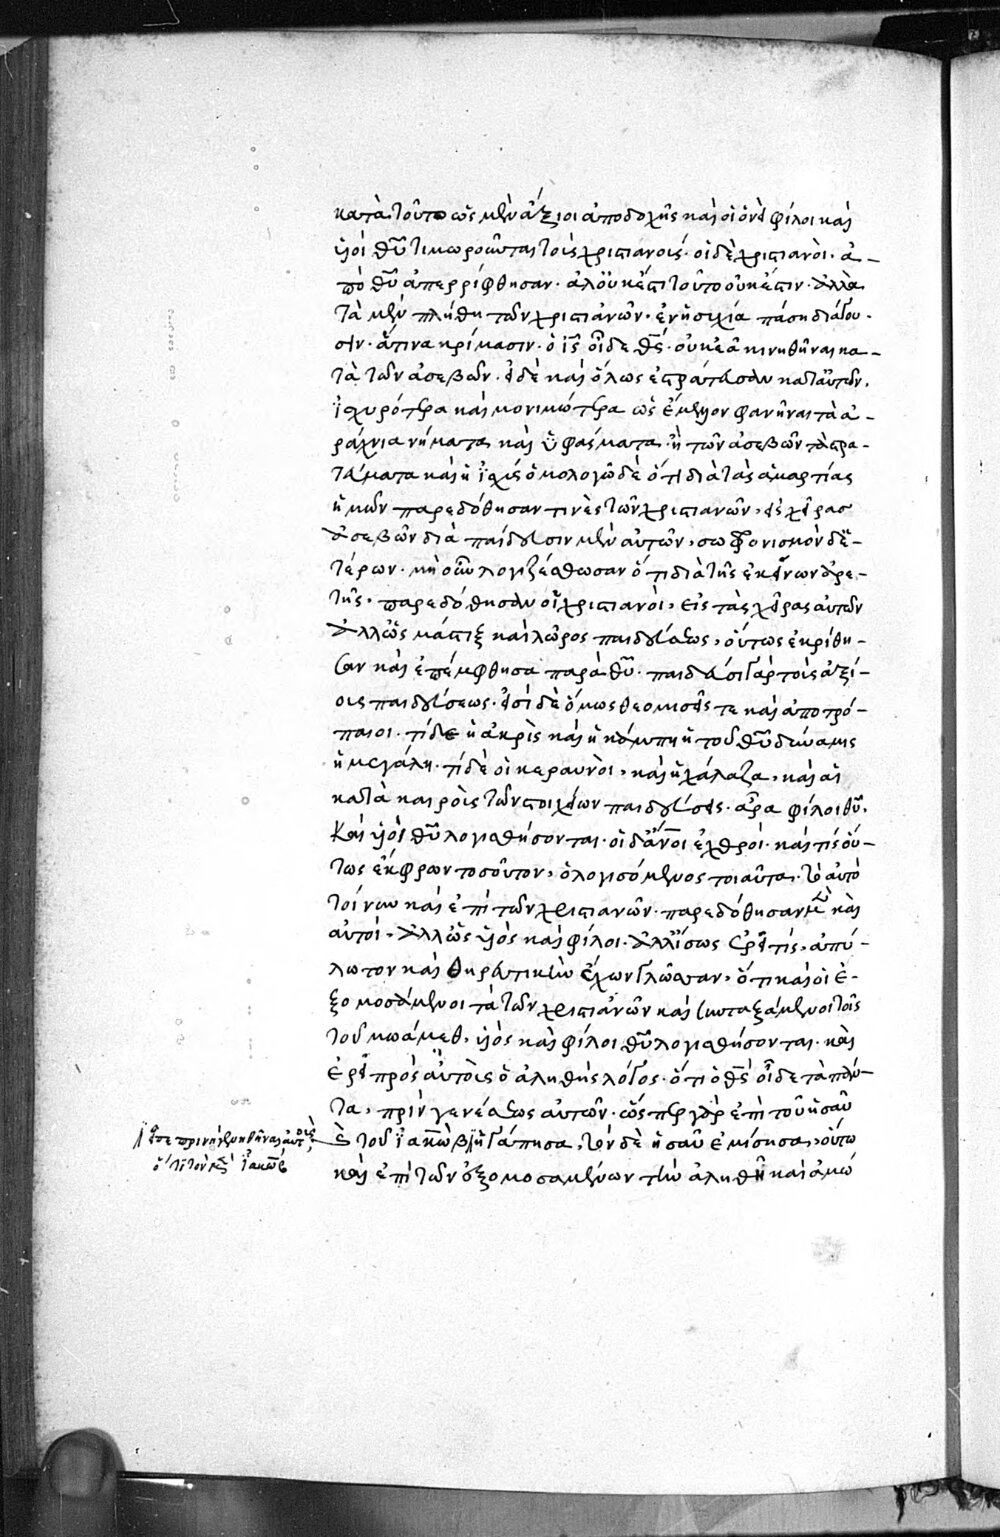 κατὰ τοῦτο ὡς μὲν ἄξιοι ἀποδοχῆς καὶ οἱονεὶ φίλοι καὶ
υἱοὶ θῦ τιμωροῦνται τοὺς χριστιανούς· οἱ δὲ χριστιανοὶ ἀ-
πὸ θῦ ἀπερρίφθησαν· ἀλ οὐκ ἔστι τοῦτο οὐκ ἔστιν· ἀλλὰ
τὰ μὲν πλήθη τῶν χριστιανῶν· ἐν ἡσυχία πάση διάγου-
σιν· ἅτινα κρίμασιν· ὁ ις οἶδε θς· οὐκ ἐᾶ κινηθῆναι κα-
τὰ τῶν ἀσεβῶν· εἰ δὲ καὶ ὅλως ἐστράτευσαν κατ αὐτῶν·
ἰσχυρότερα καὶ μονιμώτερα ὡς ἔμελλον φανῆναι τὰ ἀ-
ράχνια νήματα καὶ ὑφάσματα· ἢ τῶν ἀσεβῶν τὰ στρα-
τεύματα καὶ ἡ ἰσχύς ὁμολογῶ δὲ ὅτι διὰ τὰς ἁμαρτίας
ἡμῶν παρεδόθησαν τινὲς τῶν χριστιανῶν, εἰς χεῖρας
ἀσεβῶν διὰ παίδευσιν μὲν αὐτῶν, σωφρονισμὸν δὲ ἑ-
τέρων· μὴ οὖν λογιζέσθωσαν ὅτι διὰ τῆς ἐκείνων ἀρε-
τῆς, παρεδόθησαν οἱ χριστιανοὶ, εἰς τὰς χεῖρας αὐτῶν
ἀλλ ὡς μάστιξ καὶ λῶρος παιδεύσεως, οὕτως ἐκρίθη-
σαν καὶ ἐπέμφθησα παρὰ θῦ· παιδεύσι γὰρ τοὺς ἀξί-
ους παιδεύσεως· εἰσὶ δὲ ὅμως θεομισεῖς τε καὶ ἀποτρό-
παιοι· τί δὲ ἡ ἀκρὶς καὶ ἡ κάμπη ἡ τοῦ θῦ δύναμις
ἡ μεγάλη· τί δὲ οἱ κεραυνοὶ, καὶ ἡ χάλαζα, καὶ αἱ
κατὰ καιροὺς τῶν στοιχείων παιδεύσεις· ἆρα φίλοι θῦ,
καὶ υἱοὶ θῦ λογισθήσονται· οἱ δ ἄνοι ἐχθροί· καὶ τίς οὕ-
τως ἔκφρων τοσοῦτον, ὁ λογισόμενος τοιαῦτα· τὸ αὐτὸ
τοίνυν καὶ ἐπὶ τῶν χριστιανῶν· παρεδόθησαν μὲν καὶ
αὐτοί, ἀλλ ὡς υἱὸς καὶ φίλοι· ἀλλ ἴσως ἐρεῖ τίς, ἀπύ-
λωτον καὶ θηρευτικὴν ἔχων γλῶσσαν, ὅτι καὶ οἱ ἐ-
ξομοσάμενοι τὰ τῶν χριστιανῶν καὶ συνταξάμενοι τοῖς
τοῦ μωάμεθ, υἱὸς καὶ φίλοι θῦ λογισθήσονται· καὶ
ἐρεῖ πρὸς αὐτοὺς ὁ ἀληθὴς λόγος· ὅτι ὁ θς οἶδε τὰ πάν-
τα, πρὶν γενέσεως αὐτῶν· ὥσπερ γὰρ ἐπὶ τοῦ ἡσαῦ
καὶ τοῦ ἰακὼβ ἠγάπησα, τὸν δὲ ἡσαῦ ἐμίσησα, οὕτω
εἶπε πρὶν ἢ γεννηθῆναι αὐτοὺς,
ὅτι τὸν μὲν ἰακὼβ
καὶ ἐπὶ τῶν ἐξομοσαμένων τὴν ἀληθῆ καὶ ἀμώ